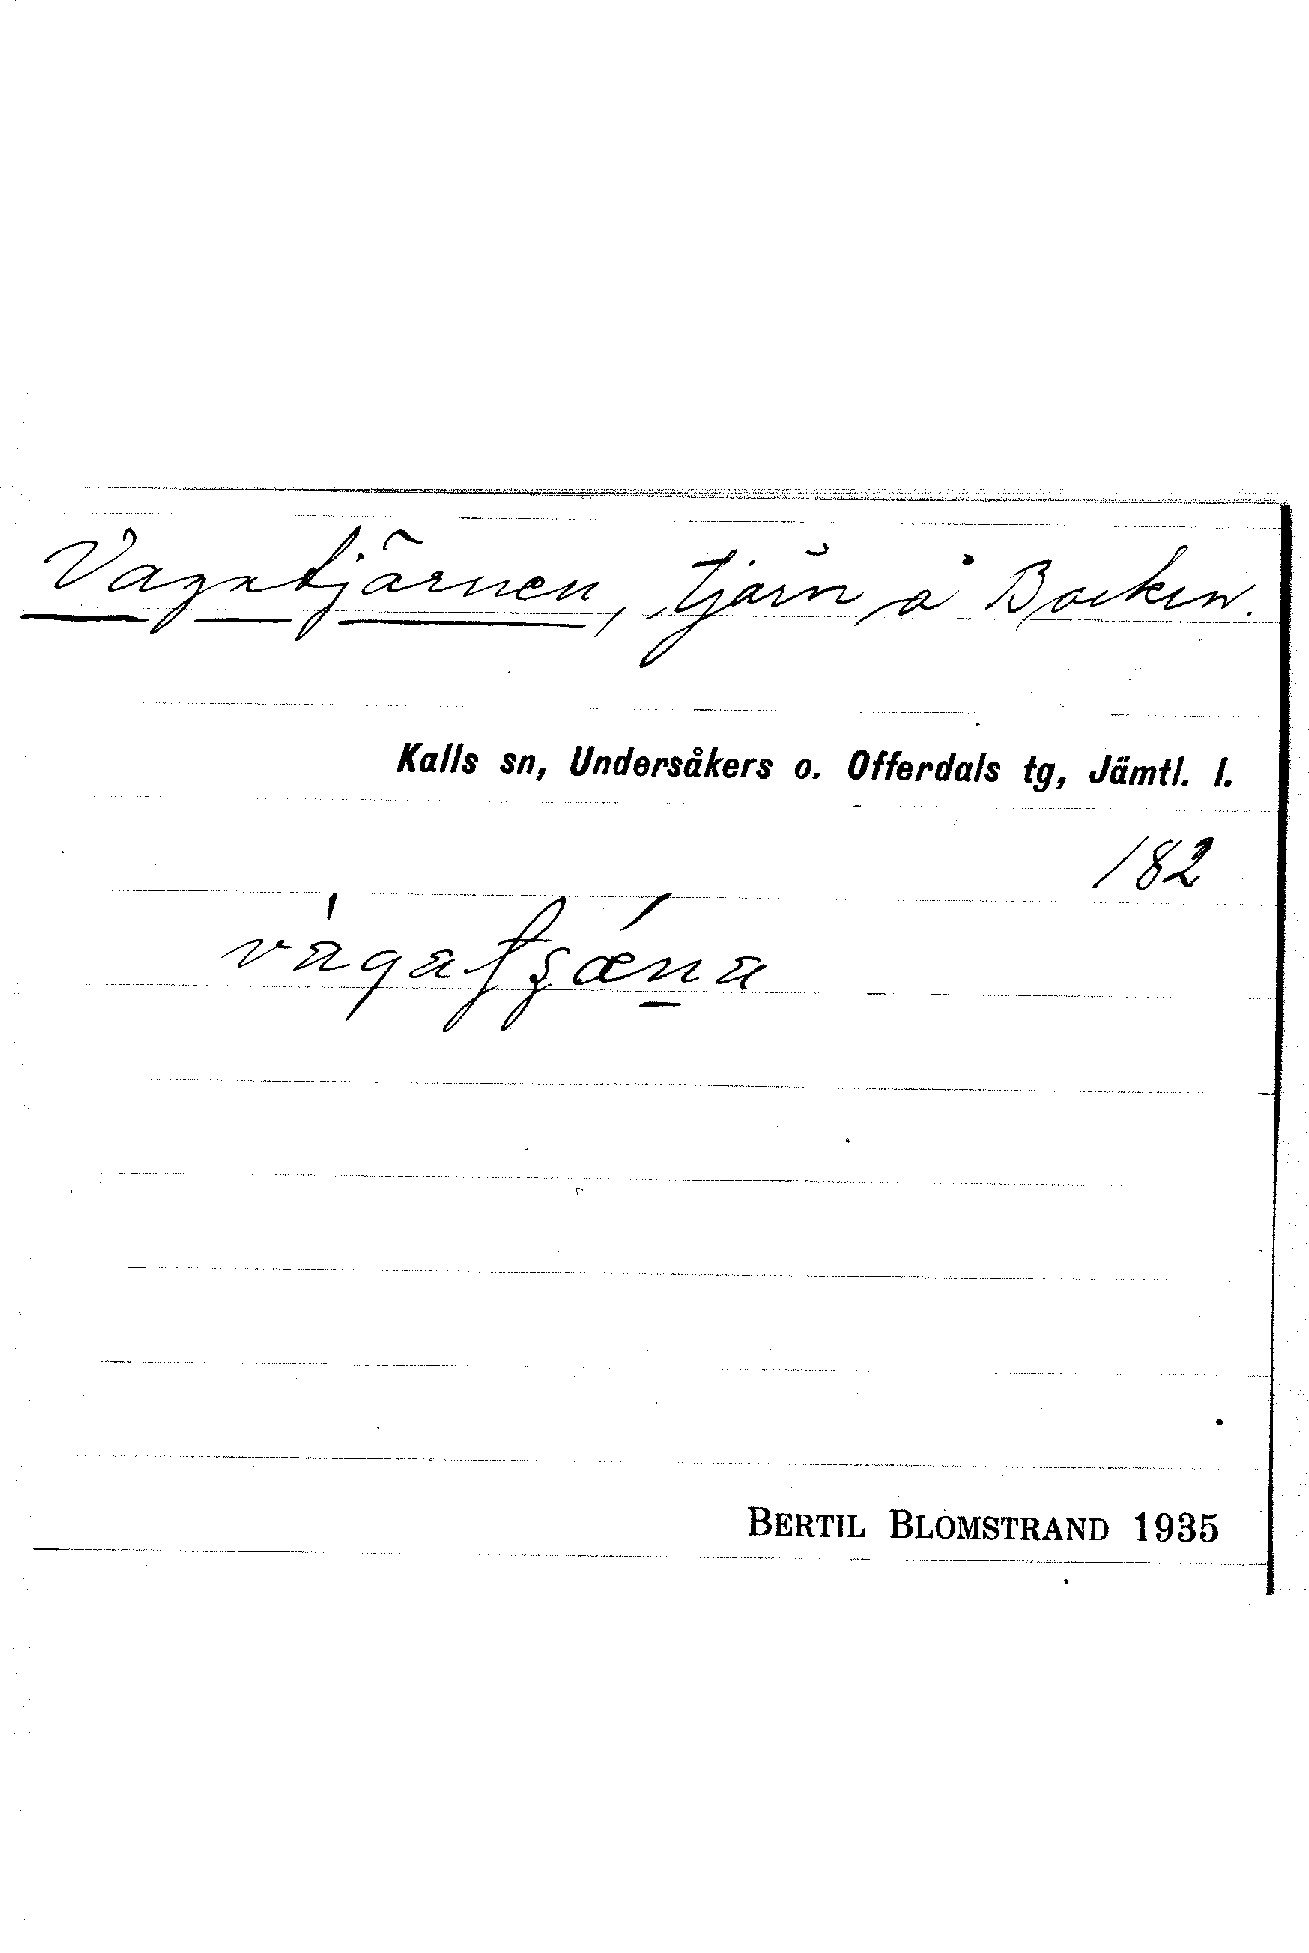 Vagatjärnen, tjärn å Backen.
Kalls sn, Undersåkers o. Offerdals tg, Jämtl. l.
182
BERTIL BLOMSTRAND 1935